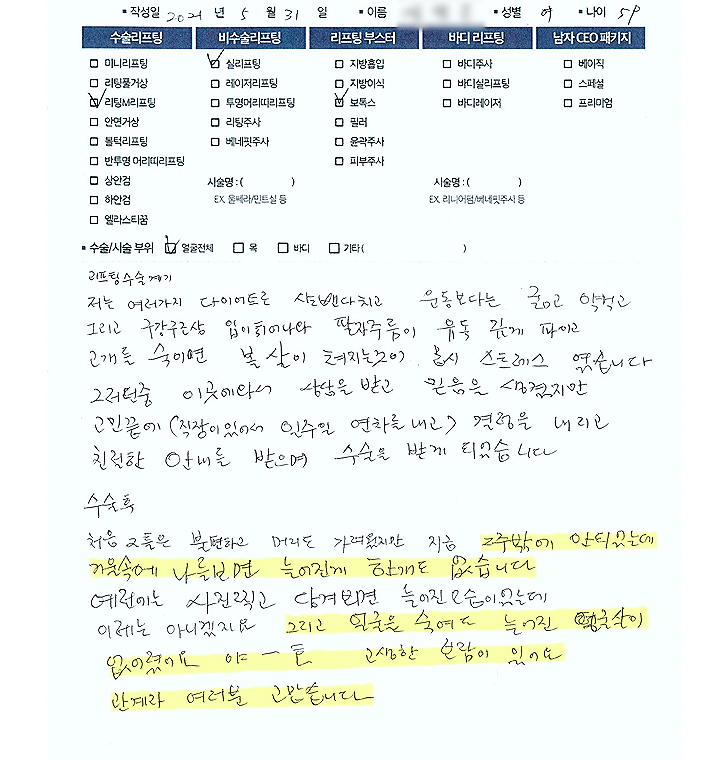 ▪ 작성일 2021 년 5 월 31 일 ▪ 이름 ▪ 성별 여 ▪ 나이 59
수술리프팅 비수술리프팅 리프팅 부스터 바디 리프팅 남자 CEO 패키지
□ 미니리프팅 ☑ 실리프팅 □ 지방흡입 □ 바디주사 □ 베이직
□ 리팅풀거상 □ 레이저리프팅 □ 지방이식 □ 바디실리프팅 □ 스페셜
☑ 리팅M리프팅 □ 투명머리띠리프팅 ☑ 보톡스 □ 바디레이저 □ 프리미엄
□ 안면거상 □ 리팅주사 □ 필러
□ 볼턱리프팅 □ 베네핏주사 □ 윤곽주사
□ 반투명 머리띠리프팅 □ 피부주사
□ 상안검 시술명 : ( ) 시술명 : ( )
□ 하안검 EX. 울쎄라/민트실 등 EX. 리니어펌/베네핏주사 등
□ 엘라스티꿈
▪ 수술/시술 부위 ☑ 얼굴전체 □ 목 □ 바디 □ 기타 ( )
리프팅수술 계기
저는 여러가지 다이어트로 운동보다는 굶고 약먹고
그리고 구강구조상 입이 튀어나와 팔자주름이 유독 깊게 파이고
고개를 숙이면 볼살이 쳐지는것이 몹시 스트레스 였습니다
그러던중 이곳에와서 상담을 받고 믿음을 생겼지만
고민끝에 (직장이있어서 일주일 연차를 내고) 결정을 내리고
친절한 안내를 받으며 수술을 받게 되었습니다
수술후
처음 2틀은 불편하고 머리도 가려웠지만 지금 2주밖에 안되었는데
거울속에 나를보면 늘어진게 한개도 없습니다
예전에는 사진찍고 당겨보면 늘어진모습이었는데
이제는 아니겠지요 그리고 얼굴을 숙여도 늘어진 얼굴살이
없어졌어요 야 - 호 고생한 보람이 있어요
관계라 여러분 고맙습니다